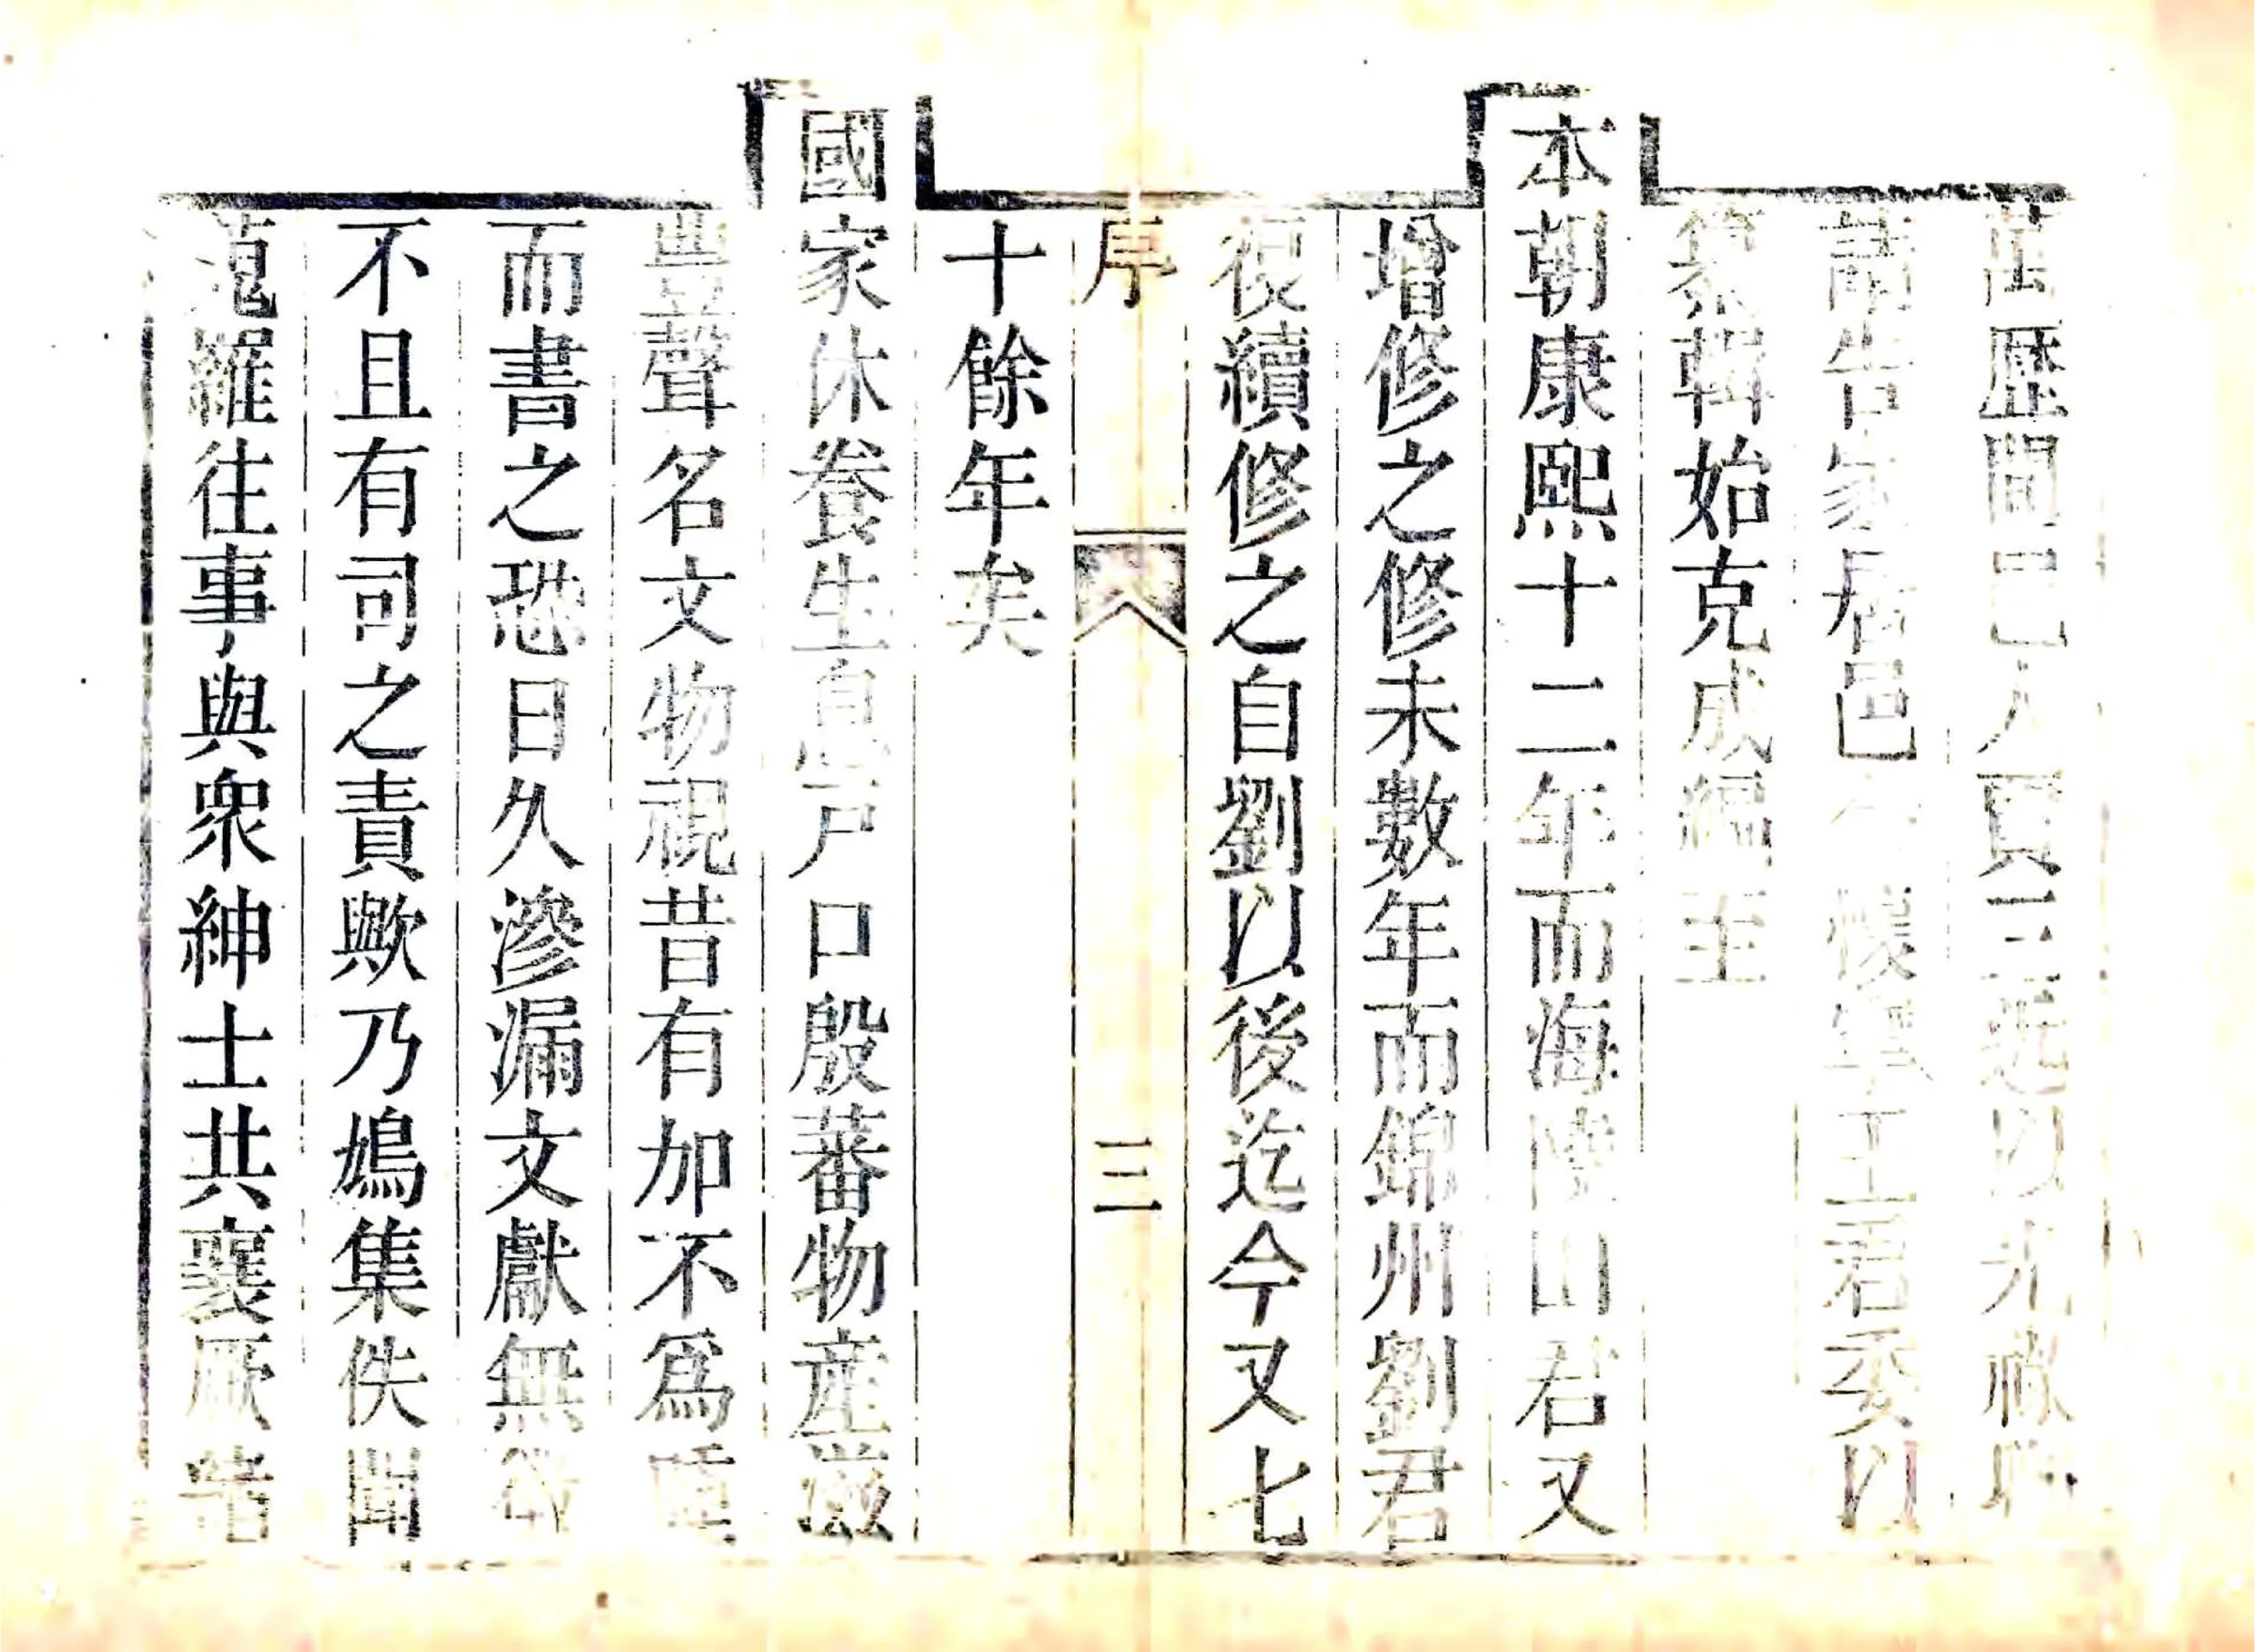 萬歷間邑人賈三近以光祿
請告家居邑令懷寧王君委以
纂輯始克成編至
本朝康熙十二年而海陵田君又
增修之修未數年而錦州劉君
復續修之自劉以後迄今又七
序 三
十餘年矣
國家休養生息戶口殷蕃物產滋
豐聲名文物視昔有加不爲
而書之恐日久滲漏文獻無
不且有司之責歟乃鳩集佚聞
蒐羅往事與衆紳士共襄厥